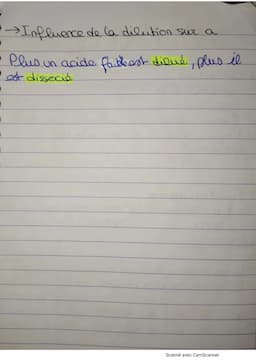 → Influence de la dilution sur α
Plus un acide faible est dilué, plus il
est dissocié
Scanné avec CamScanner